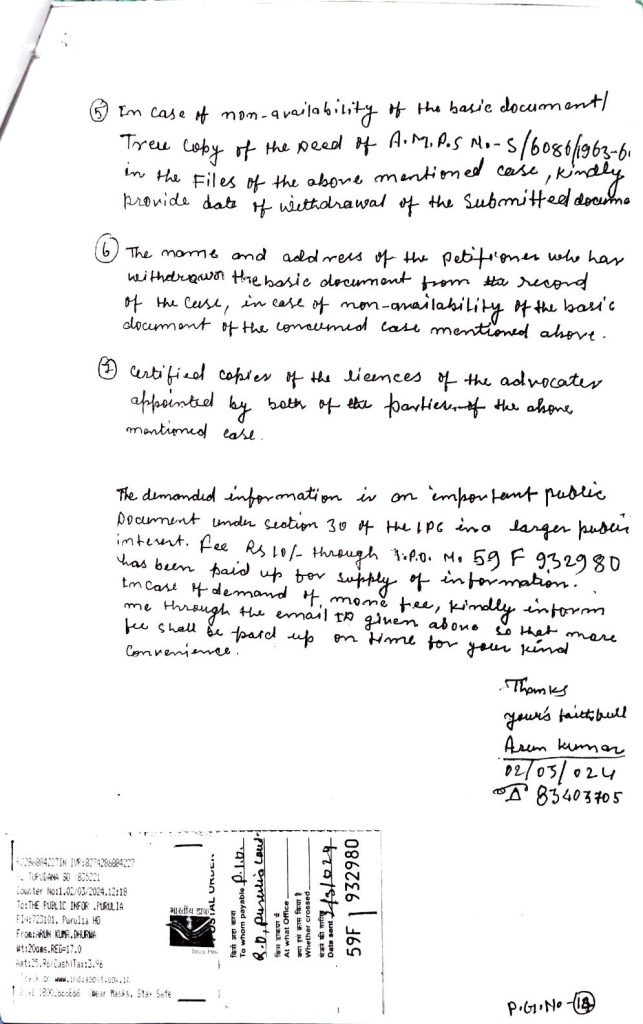 (5) In case of non-availability of the basic document/
True Copy of the Deed of A.M.P.S No- S/6086/1963-6
in the Files of the above mentioned case, kindly
provide date of withdrawal of the Submitted docume
(6) The name and address of the petitioner who has
withdrawn the basic document from the record
of the Case, in case of non-availability of the basic
document of the concerned case mentioned above.
(7) Certified copies of the licences of the advocates
appointed by both of the parties of the above
mentioned case.
The demanded information is an important public
Document under section 30 of the IPC in a larger public
interest. Fee Rs 10/- through I.P.O. No 59 F 932980
has been paid up for supply of information.
In case of demand of more fee, kindly inform
me through the email ID given above so that more
fee shall be paid up on time for your kind
Convenience.
Thanks
your's faithfull
Arun kumar
02/03/024
83403705
IVR:8274206004227
TUPUDANA SO 835221
Counter No:1,02/03/2024,12:18
To:THE PUBLIC INFOR ,PURULIA
PIN:723101, Purulia HO
From:ARUN KUMR,DHURWA
Wt:20gms,REG=17.0
Amt:25.96(Cash)Tax:3.96
Track on www.indiapost.gov.in
Wear Masks, Stay Safe
POSTAL ORDER
भारतीय डाक
India Post
किसे अदा करना
To whom payable P.I.O.
R.O, Purulia Court
किस डाकघर में
At what Office
क्या इसे क्रास किया है
Whether crossed
भेजने की तारीख
Date sent 2/3/024
59F 932980
P.G.No-(12)